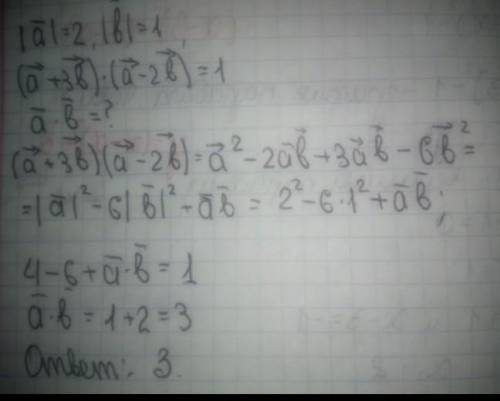 |a̅|=2, |b̅|=1,
(a⃗+3b⃗)·(a⃗-2b⃗)=1
a̅·b̅=?
(a⃗+3b⃗)(a⃗-2b⃗)=a⃗²-2a̅b̅+3a⃗b⃗-6b⃗²=
=|a̅|²-6|b̅|²-a̅b̅=2²-6·1²+a̅b̅;
4-6+a̅·b̅=1
a̅·b̅=1+2=3
Ответ: 3.